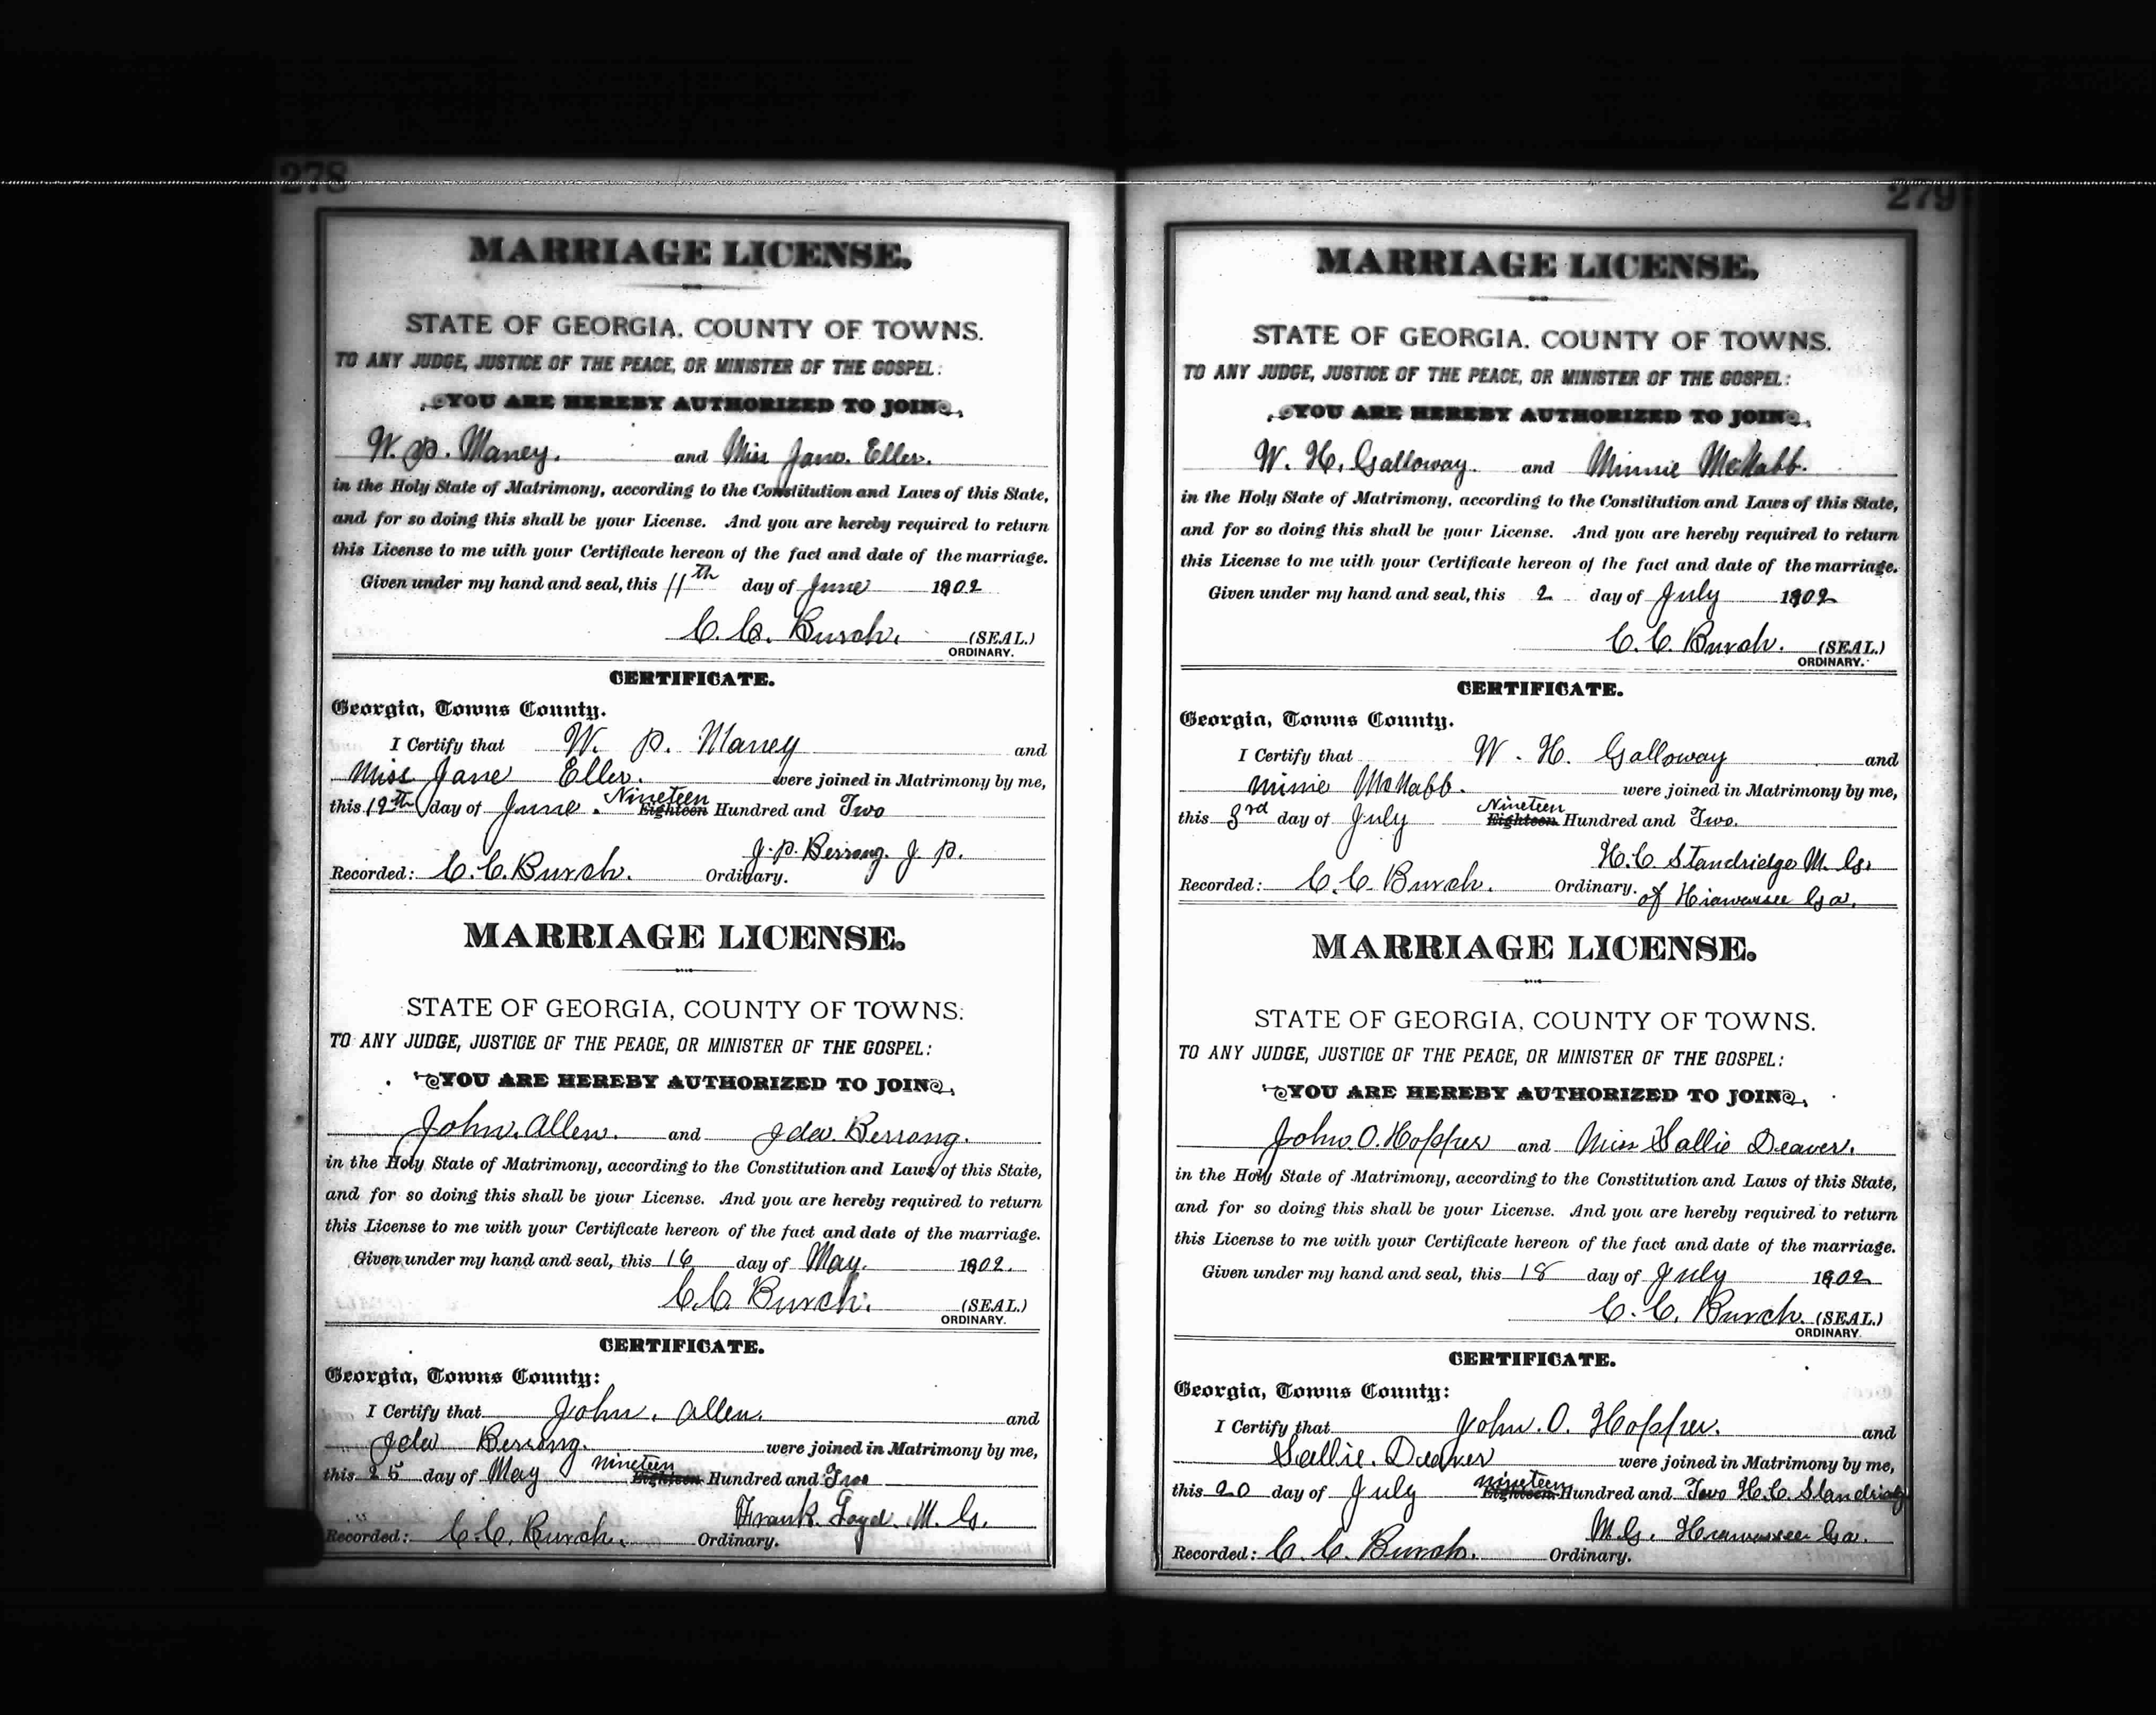 278
MARRIAGE LICENSE.
STATE OF GEORGIA. COUNTY OF TOWNS.
TO ANY JUDGE, JUSTICE OF THE PEACE, OR MINISTER OF THE GOSPEL:
YOU ARE HEREBY AUTHORIZED TO JOIN
W. P. Maney. and Miss Jane. Eller.
in the Holy State of Matrimony, according to the Constitution and Laws of this State,
and for so doing this shall be your License. And you are hereby required to return
this License to me uith your Certificate hereon of the fact and date of the marriage.
Given under my hand and seal, this 11th day of June 1902
C. C. Burch. (SEAL.)
ORDINARY.
CERTIFICATE.
Georgia, Towns County.
I Certify that W. P. Maney and
Miss Jane Eller. were joined in Matrimony by me,
this 12th day of June. Nineteen Eighteen Hundred and Two
J. P. Berrong. J. P.
Recorded: C. C. Burch. Ordinary.
MARRIAGE LICENSE.
STATE OF GEORGIA, COUNTY OF TOWNS.
TO ANY JUDGE, JUSTICE OF THE PEACE, OR MINISTER OF THE GOSPEL:
YOU ARE HEREBY AUTHORIZED TO JOIN
John. Allen. and Ida. Berrong.
in the Holy State of Matrimony, according to the Constitution and Laws of this State,
and for so doing this shall be your License. And you are hereby required to return
this License to me with your Certificate hereon of the fact and date of the marriage.
Given under my hand and seal, this 16 day of May. 1902.
C. C. Burch. (SEAL.)
ORDINARY.
CERTIFICATE.
Georgia, Towns County:
I Certify that John. Allen. and
Ida Berrong. were joined in Matrimony by me,
this 25 day of May nineteen Eighteen Hundred and Two
Frank Loyd. M. G.
Recorded: C. C. Burch. Ordinary.
279
MARRIAGE LICENSE.
STATE OF GEORGIA. COUNTY OF TOWNS.
TO ANY JUDGE, JUSTICE OF THE PEACE, OR MINISTER OF THE GOSPEL:
YOU ARE HEREBY AUTHORIZED TO JOIN
W. H. Galloway. and Minnie McNabb.
in the Holy State of Matrimony, according to the Constitution and Laws of this State,
and for so doing this shall be your License. And you are hereby required to return
this License to me uith your Certificate hereon of the fact and date of the marriage.
Given under my hand and seal, this 2 day of July 1902
C. C. Burch. (SEAL.)
ORDINARY.
CERTIFICATE.
Georgia, Towns County.
I Certify that W. H. Galloway and
Minie McNabb. were joined in Matrimony by me,
this 3rd day of July Nineteen Eighteen Hundred and Two.
H. C. Standridge M. G.
Recorded: C. C. Burch. Ordinary. of Hiawassee Ga.
MARRIAGE LICENSE.
STATE OF GEORGIA, COUNTY OF TOWNS.
TO ANY JUDGE, JUSTICE OF THE PEACE, OR MINISTER OF THE GOSPEL:
YOU ARE HEREBY AUTHORIZED TO JOIN
John. O. Hopper and Miss Sallie Deaver.
in the Holy State of Matrimony, according to the Constitution and Laws of this State,
and for so doing this shall be your License. And you are hereby required to return
this License to me with your Certificate hereon of the fact and date of the marriage.
Given under my hand and seal, this 18 day of July 1902
C. C. Burch. (SEAL.)
ORDINARY.
CERTIFICATE.
Georgia, Towns County:
I Certify that John. O. Hopper. and
Sallie. Deaver were joined in Matrimony by me,
this 20 day of July nineteen Eighteen Hundred and Two H. C. Standridg
M. G. Hiawassee Ga.
Recorded: C. C. Burch. Ordinary.